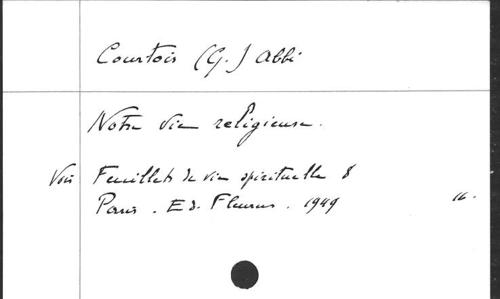 Courtois (G.) Abbé
Notre vie religieuse.
Voir Feuillets de vie spirituelle 8
Paris. Ed. Fleurus. 1949 16.